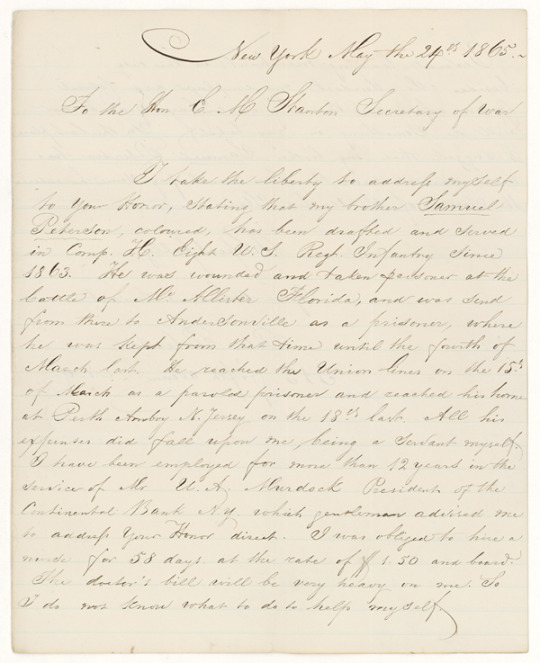 New York May the 24th 1865.
To the Hon E. M Stanton Secretary of War
I take the liberty to address myself
to Your Honor, Stating that my brother Samuel
Peterson, coloured, has been drafted and served
in Comp. H. Eight U.S. Regt. Infantry since
1863. He was wounded and taken prisoner at the
battle of Mc Allister Florida, and was send
from there to Andersonville as a prisoner, where
he was kept from that time until the fourth of
March last. He reached the Union lines on the 15th
of March as a paroled prisoner and reached his home
at Perth Amboy N. Jersey on the 18th last. All his
expenses did fall upon me being a Servant myself.
I have been employed for more than 12 years in the
service of Mr. U. A. Murdock President of the
Continental Bank N.Y. which gentleman advised me
to address Your Honor direct. I was obliged to hire a
nurse for 58 days at the rate of $1.50 and board.
The doctor's bill will be very heavy on me. So
I do not know what to do to help myself.